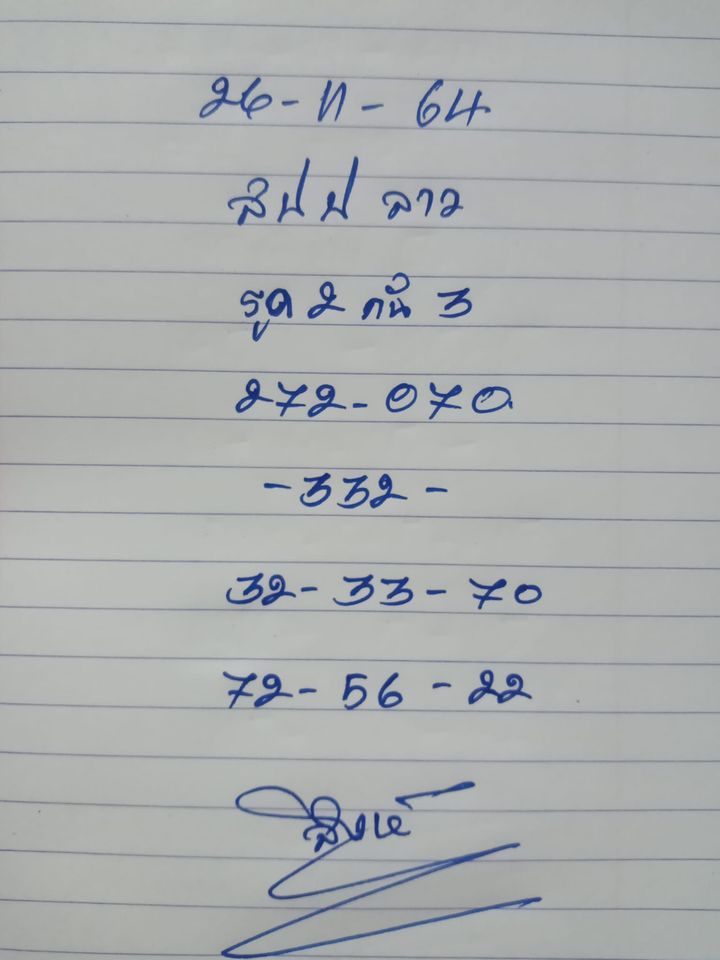 26-11-64
สปป ลาว
รูด 2 กับ 3
272-070
-332-
32-33-70
72-56-22
สิงห์